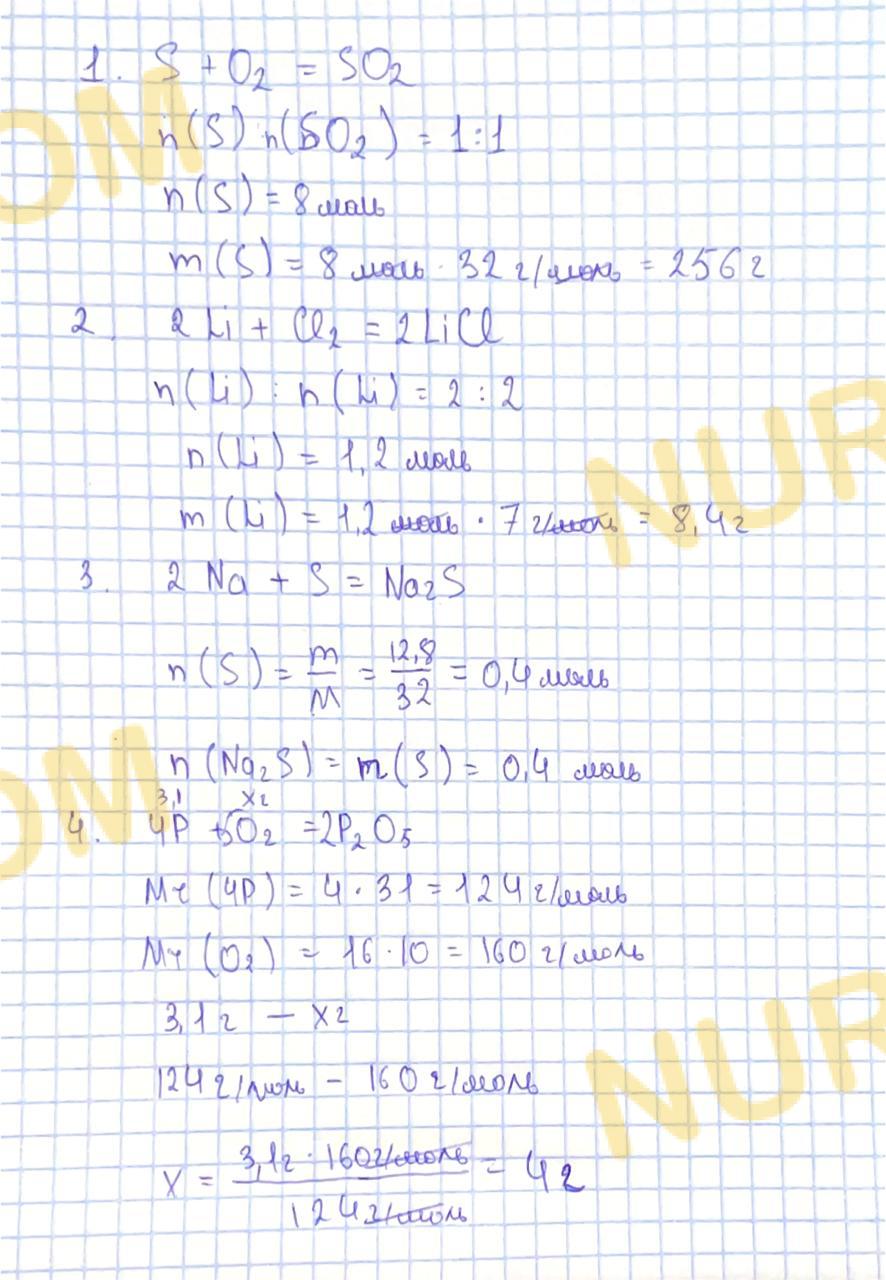 1. S + O₂ = SO₂
n(S) n(SO₂) = 1:1
n(S) = 8 моль
m(S) = 8 моль · 32 г/моль = 256 г
2. 2Li + Cl₂ = 2LiCl
n(Li) : n(Li) = 2 : 2
n(Li) = 1,2 моль
m(Li) = 1,2 моль · 7 г/моль = 8,4 г
3. 2Na + S = Na₂S
n(S) = m/M = 12,8/32 = 0,4 моль
n(Na₂S) = m(S) = 0,4 моль
3,1 x г
4. 4P + 5O₂ = 2P₂O₅
Mr(4P) = 4 · 31 = 124 г/моль
Mr(O₂) = 16 · 10 = 160 г/моль
3,1 г – x г
124 г/моль – 160 г/моль
x = 3,1 г · 160 г/моль / 124 г/моль = 4 г
OM
NUR
OM
NUR